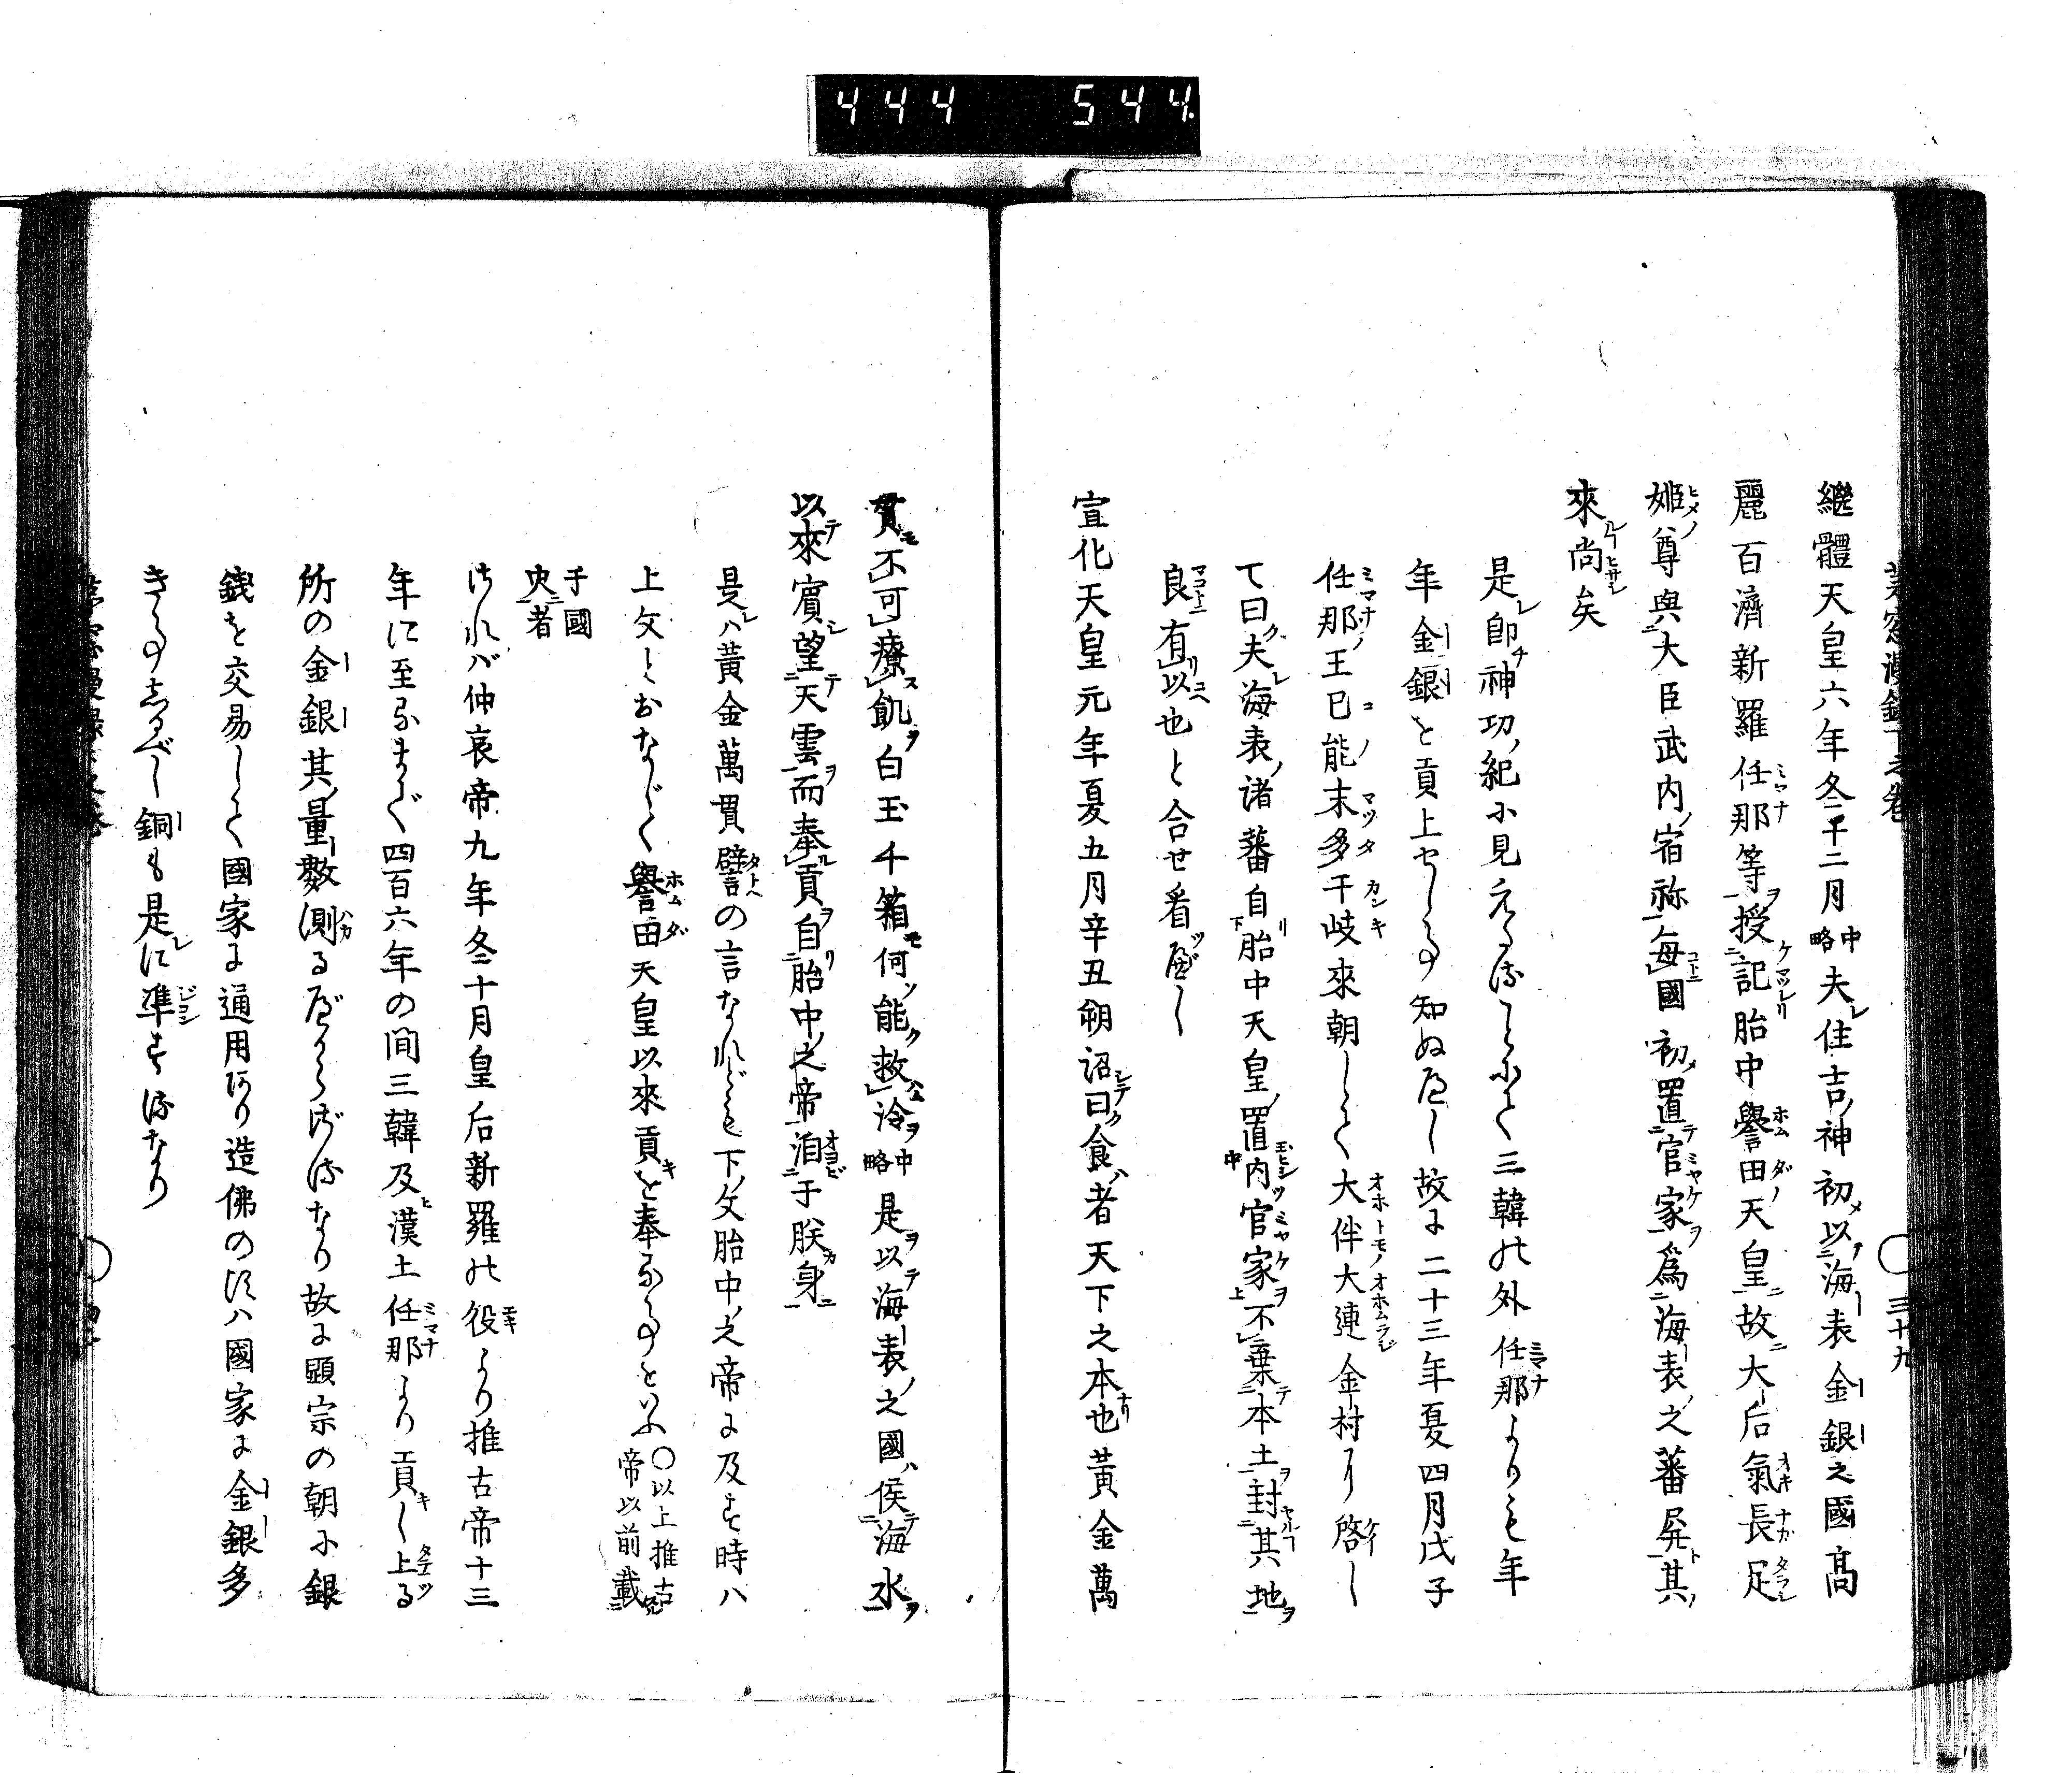 444 544
三十九
繼體天皇六年冬十二月中略夫住吉神初以海表金銀之國高
麗百濟新羅任那等授記胎中譽田天皇故大后氣長足
姬尊與大臣武内宿祢每國初置官家爲海表之蕃屏其
來尚矣
是即神功紀に見えるほとにて三韓の外任那よりも年
年金銀を貢上せし事知ぬべし故に二十三年夏四月戊子
任那王己能末多干岐來朝して大伴大連金村に啓し
て曰夫海表諸蕃自胎中天皇置内官家不棄本土封其地
良有以也と合せ看べし
宣化天皇元年夏五月辛丑朔詔曰食者天下之本也黃金萬
貫不可療飢白玉千箱何能救冷中略是以海表之國候海水
以來賓望天雲而奉貢自胎中之帝洎于朕身
是ハ黃金萬貫譬の言なれども下文胎中之帝に及す時ハ
上文とおなじく譽田天皇以來貢を奉る事をいふ〇以上推古帝以前載
于國史者
されバ仲哀帝九年冬十月皇后新羅の役より推古帝十三
年に至るまで四百六年の間三韓及漢土任那より貢し上る
所の金銀其量數測るべからざるなり故に顯宗の朝に銀
錢を交易して國家に通用あり造佛の頃ハ國家に金銀多
き事しるべし銅も是に準ずるなり